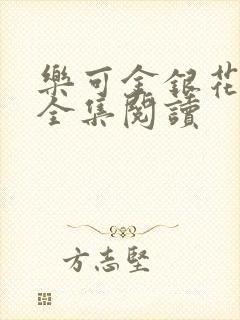 樂可金銀花
全集閱讀
方志堅